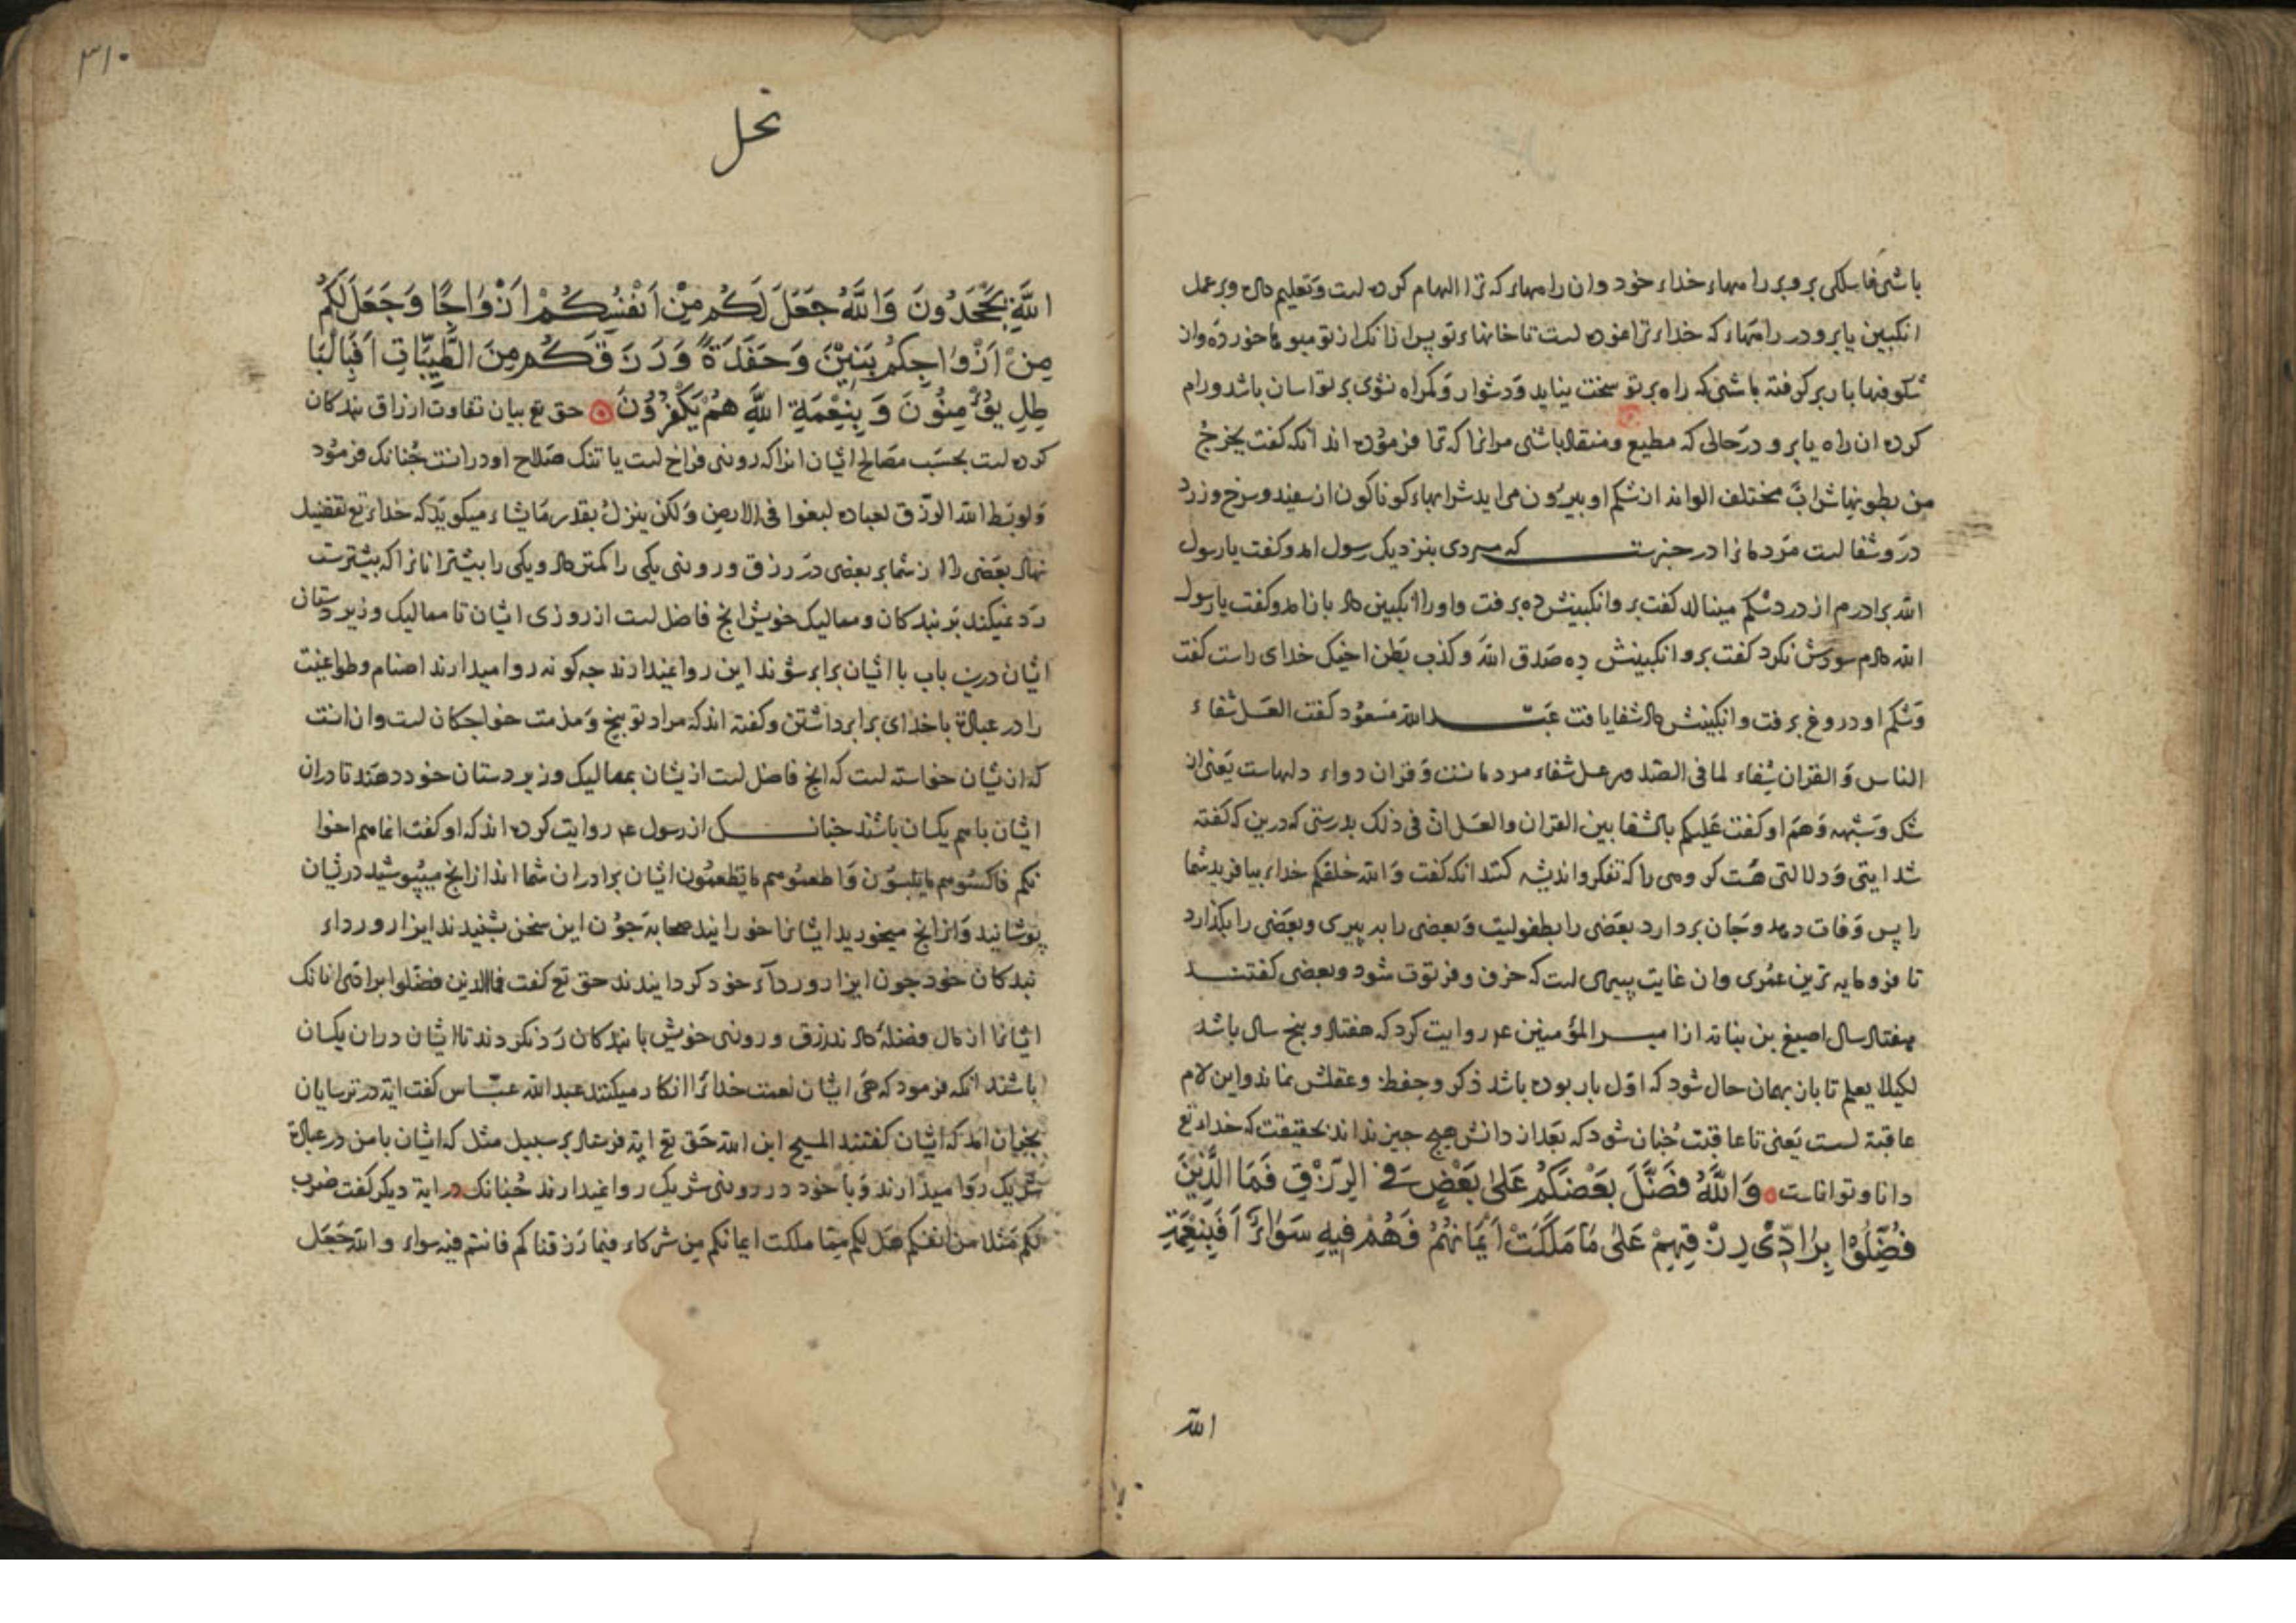 باشی فاسلکی برو بر راههاء خداء خود وان راههاء که ترا الهام کرده است و تعلیم داده و بر عمل
انکبین یا برو در راههاء که خداء ترا فرموده است تا خانهاء تو پس از انک از تو میوها خورده وان
شکوفها بار بر کرفته باشی که راه بر تو سخت نیاید و دشوار و کمراه نشوی بر تو اسان باشد و رام
کرده ان راه یا برو در حالی که مطیع و منقاد باشی مرانرا که ترا فرموده اند انکه کفت یخرج
من بطونها شراب مختلف الوانه از شکم او بیرون می اید شرابهاء کوناکون از سفید و سرخ و زرد
درو شفا است مردمانرا در خبرست که مردی بنزدیک رسول امد و کفت یا رسول
الله برادرم از درد شکم مینالد کفت برو انکبینش ده برفت و او را انکبین داد باز امد و کفت یا رسول
الله دادم سودش نکرد کفت برو انکبینش ده صدق الله و کذب بطن اخیک خدای راست کفت
و شکم او دروغ برفت و انکبینش داد شفا یافت عبد الله مسعود کفت العسل شفاء
الناس و القران شفاء لما فی الصدور عسل شفاء مردمانست و قران دواء دلهاست یعنی از
شک و شبهه و هم او کفت علیکم بالشفا بین القران والعسل ان فی ذلک بدرستی که درین که کفته
شد ایتی و دلالتی هست کروهی را که تفکر و اندیشه کنند انکه کفت و الله خلقکم خداء بیافرید شما
را پس وفات دهد و جان بردارد بعضی را بطفولیت و بعضی را به پیری و بعضی را بکذارد
تا فرومایه ترین عمری وان غایت پیری است که خرف و فرتوت شود و بعضی کفتند
هفتاد سال اصبغ بن نباته از امیر المؤمنین عم روایت کرد که هفتاد و پنج سال باشد
لکیلا یعلم تا بان بهمان حال شود که اول بار بوده باشد ذکر و حفظ و عقلش نماند و این لام
عاقبة است یعنی تا عاقبت چنان شود که بعد از دانش هیچ جیز نداند بحقیقت که خداء تع
دانا و تواناست وَاللَّهُ فَضَّلَ بَعْضَكُمْ عَلَىٰ بَعْضٍ فِي الرِّزْقِ فَمَا الَّذِينَ
فُضِّلُوا بِرَادِّي رِزْقِهِمْ عَلَىٰ مَا مَلَكَتْ أَيْمَانُهُمْ فَهُمْ فِيهِ سَوَاءٌ أَفَبِنِعْمَةِ
الله
٣١٠
نحل
اللَّهِ يَجْحَدُونَ وَاللَّهُ جَعَلَ لَكُمْ مِنْ أَنْفُسِكُمْ أَزْوَاجًا وَجَعَلَ لَكُمْ
مِنْ أَزْوَاجِكُمْ بَنِينَ وَحَفَدَةً وَرَزَقَكُمْ مِنَ الطَّيِّبَاتِ أَفَبِالْبَا
طِلِ يُؤْمِنُونَ وَبِنِعْمَةِ اللَّهِ هُمْ يَكْفُرُونَ حق تع بیان تفاوت ارزاق بندکان
کرده است بحسب مصالح ایشان انرا که روزی فراخ است یا تنک صلاح او در انست چنانک فرمود
و لو بسط الله الرزق لعباده لبغوا فی الارض و لکن ینزل بقدر ما یشاء میکوید که خداء تع تفضیل
نهاد بعضی را از شما بر بعضی در رزق و روزی یکی را کمتر داد و یکی را بیشتر انانرا که بیشترست
رد نمیکند بر بندکان و ممالیک خویش انچ فاضل است از روزی ایشان تا ممالیک و زیردستان
ایشان درین باب با ایشان برابر شوند این روا نمیدارند جه کونه روا میدارند اصنام و طواغیت
را در عبادة با خدای برابر داشتن و کفته اند که مراد توبیخ و مذمت خواجکان است وان انست
که از یشان خواسته است که انچ فاضل است از یشان بممالیک و زیردستان خود دهند تا دران
ایشان با هم یکسان باشند چنانک از رسول عم روایت کرده اند که او کفت انما هم اخوا
نکم فاکسوهم ما تلبسون و اطعموهم ما تطعمون ایشان برادران شما اند از انچ میپوشید در یشان
پوشانید و از انچ میخورید ایشانرا خورانید صحابه جون این سخن بشنیدند ایزار و رداء
بندکان خود جون ایزار و رداء خود کردانیدند حق تع کفت فما الذین فضلوا برادی انانک
ایشانرا از مال فضله داد ند رزق و روزی خویش با بندکان رد نکردند تا ایشان دران یکسان
باشند انکه فرمود که می ایشان نعمت خداء را انکار میکنند عبد الله عباس کفت ایة در ترسایان
نجران امد که ایشان کفتند المسیح ابن الله حق تع ایة فرستاد بر سبیل مثل که ایشان با من در عبادة
شریک روا میدارند و با خود در روزی شریک روا نمیدارند چنانک در ایة دیکر کفت ضرب
لکم مثلا من انفسکم هل لکم مما ملکت ایمانکم من شرکاء فیما رزقناکم فانتم فیه سواء و الله جعل